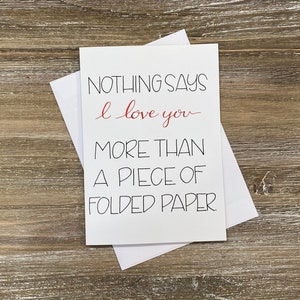 NOTHING SAYS
I love you
MORE THAN
A PIECE OF
FOLDED PAPER